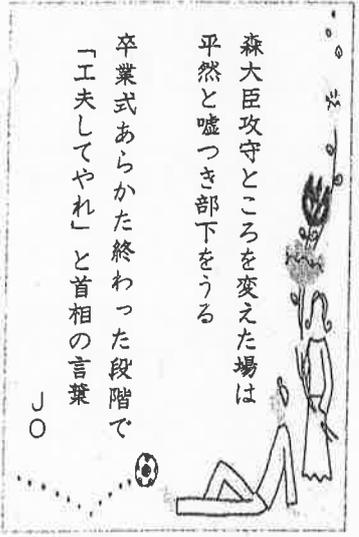 森大臣攻守ところを変えた場は
平然と嘘つき部下をうる
卒業式あらかた終わった段階で
「工夫してやれ」と首相の言葉
JO